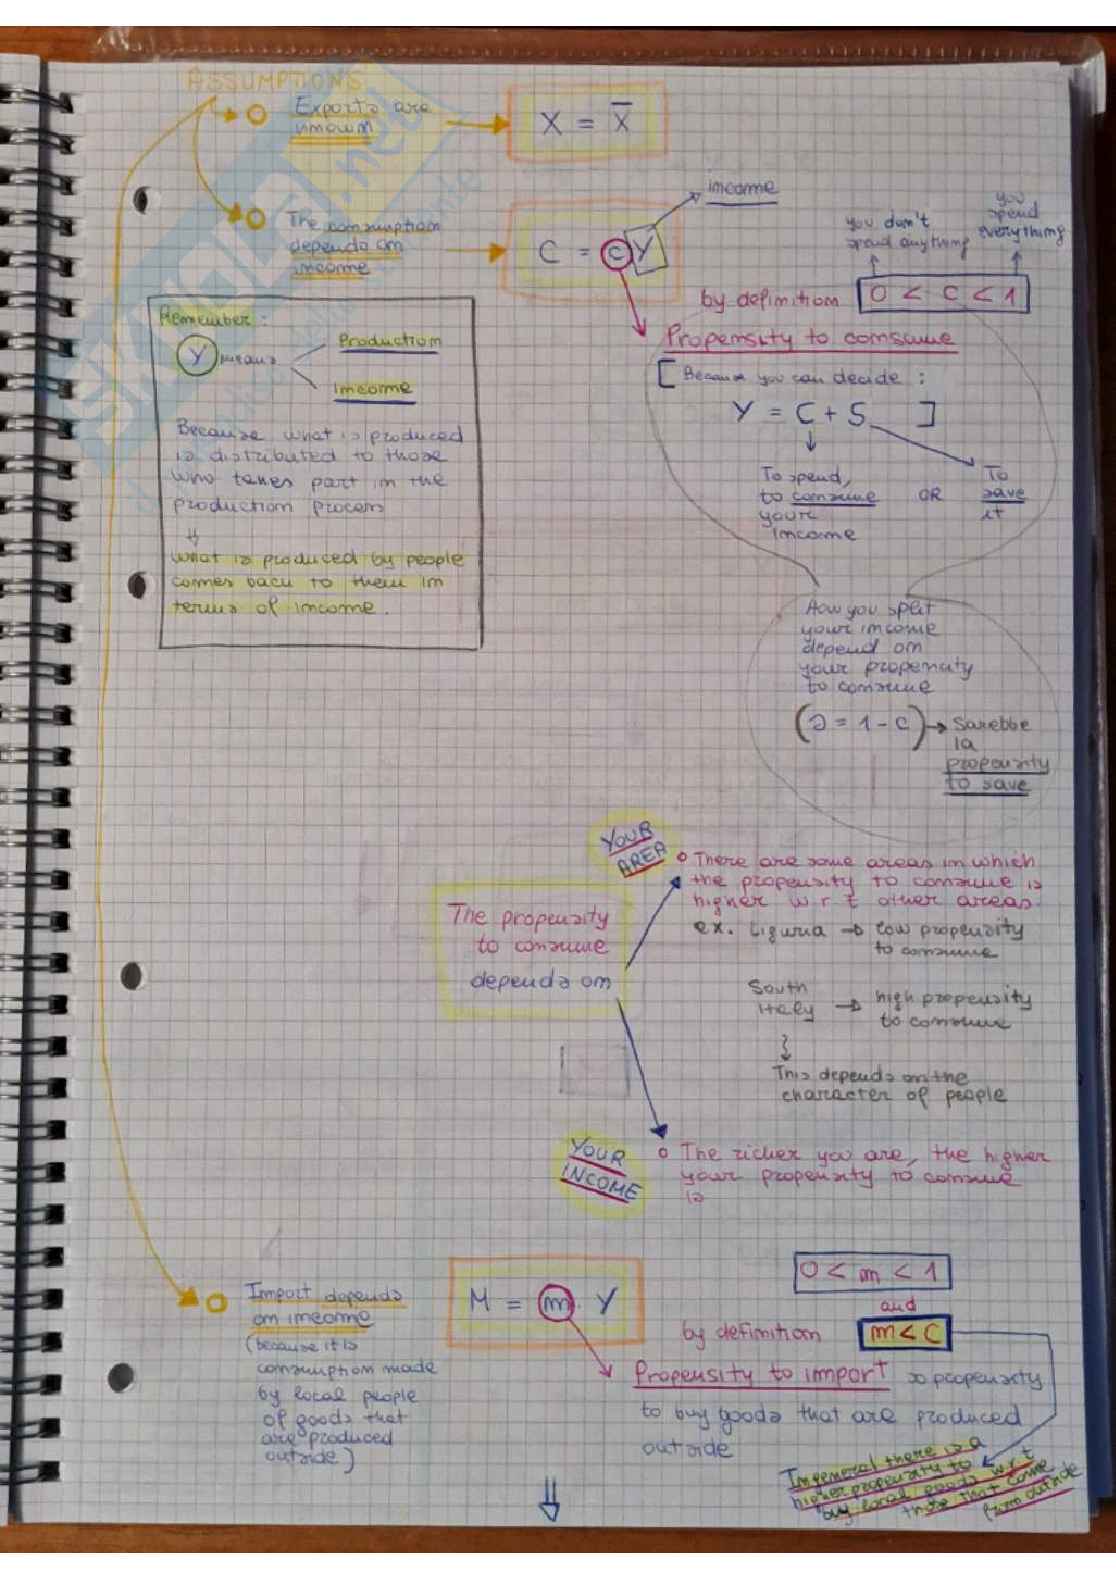 ASSUMPTIONS
Exports are
unown
X = X̅
The consumption
depends on
income
C = cY
income
you don't
spend anything
you
spend
everything
by definition
0 < c < 1
Propensity to consume
[ Because you can decide :
Y = C + S ]
To spend,
to consume
your
income
OR
To
save
it
Remember :
Y means
Production
Income
Because what is produced
is distributed to those
who takes part in the
production process
⇓
what is produced by people
comes back to them in
terms of income.
How you split
your income
depend on
your propensity
to consume
(s = 1 - c) → Sarebbe
la
propensity
to save
The propensity
to consume
depends on
YOUR
AREA
There are some areas in which
the propensity to consume is
higher w r t other areas.
ex. Liguria → low propensity
to consume
South
Italy → high propensity
to consume
This depends on the
character of people
YOUR
INCOME
The richer you are, the higher
your propensity to consume
is
Import depends
on income
(because it is
consumption made
by local people
of goods that
are produced
outside)
M = m · Y
0 < m < 1
and
by definition
m < C
Propensity to import so propensity
to buy goods that are produced
outside
In general there is a
higher propensity to
buy local goods w r t
those that come
from outside
⇓